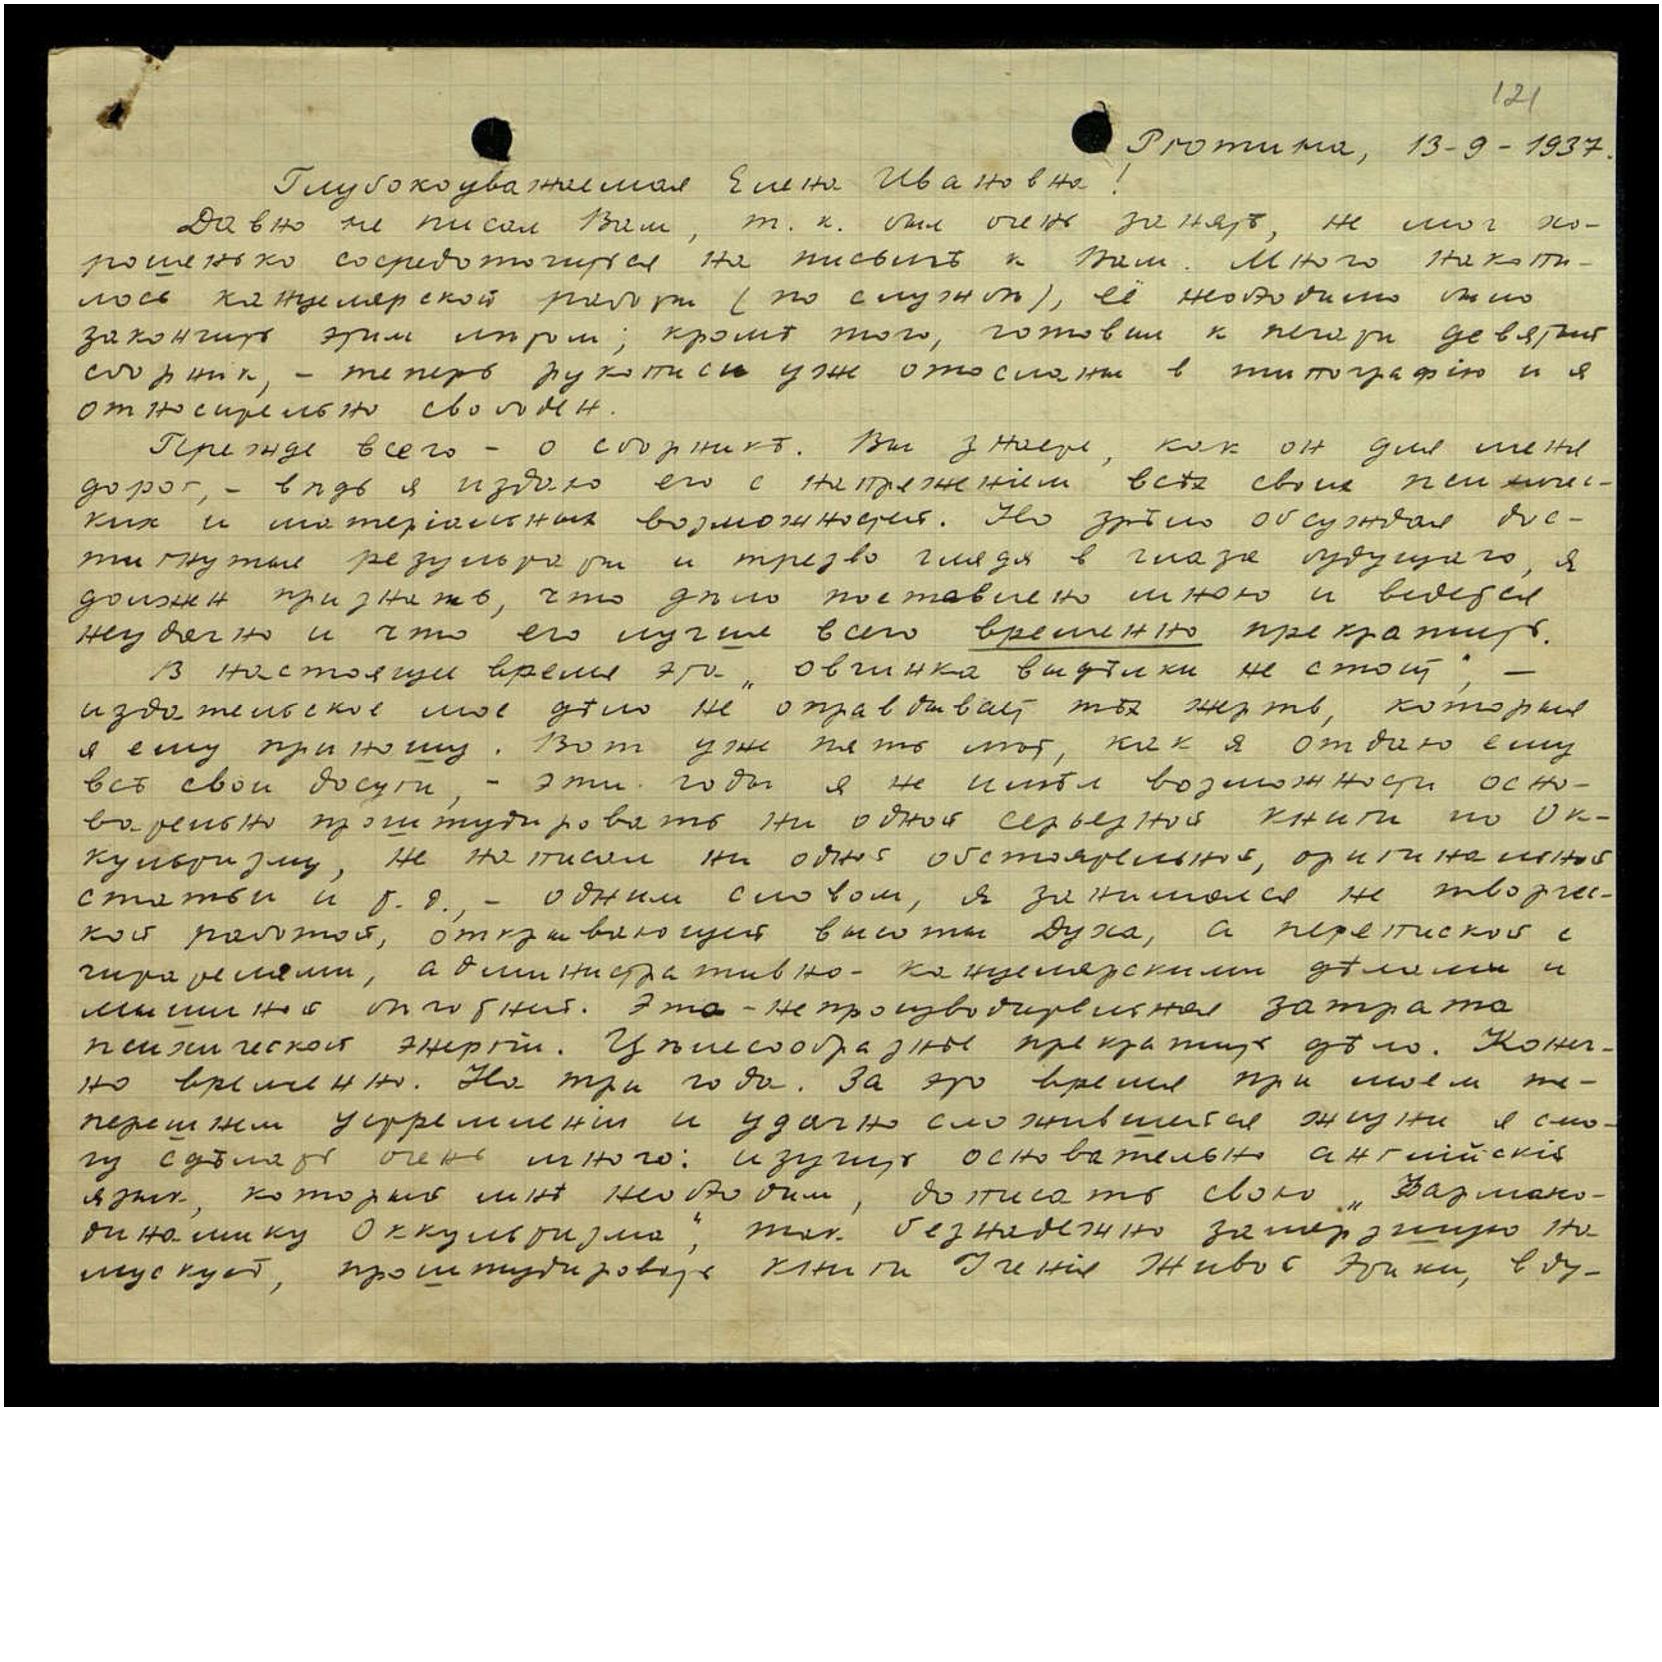 121
Рготина, 13-9-1937.
Глубокоуважаемая Елена Ивановна!
Давно не писал Вам, т. к. был очень занят, не мог хо-
рошенько сосредоточиться на письмѣ к Вам. Много накопи-
лось канцелярской работы (по службѣ), её необходимо было
закончить этим лѣтом; кромѣ того, готовил к печати девятый
сборник, – теперь рукописи уже отосланы в типографію и я
относительно свободен.
Прежде всего – о сборникѣ. Вы знаете, как он для меня
дорог, – вѣдь я издаю его с напряженіем всѣх своих психичес-
ких и матеріальных возможностей. Но зрѣло обсуждая дос-
тигнутые результаты и трезво глядя в глаза будущаго, я
должен признать, что дѣло поставлено мною и ведется
неудачно и что его лучше всего временно прекратить.
В настоящее время эта „овчинка выдѣлки не стоит", –
издательское мое дѣло не оправдывает тѣх жертв, которыя
я ему приношу. Вот уже пять лѣт, как я отдаю ему
всѣ свои досуги, – эти годы я не имѣл возможности осно-
вательно проштудировать ни одной серьезной книги по Ок-
культизму, не написал ни одной обстоятельной, оригинальной
статьи и т. д., – одним словом, я занимался не творчес-
кой работой, открывающей высоты духа, а перепиской с
читателями, административно-канцелярскими дѣлами и
мышиной бѣготней. Это – непроизводительная затрата
психической энергіи. Цѣлесообразнѣе прекратить дѣло. Конеч-
но временно. На три года. За это время при моем те-
перешнем устремленіи и удачно сложившейся жизни я смо-
гу сдѣлать очень много: изучить основательно англійскій
язык, который мнѣ необходим, дописать свою „Фармако-
динамику Оккультизма", так безнадежно замерзшую на
мускусѣ, проштудировать книги Ученія Живой Этики, вду-